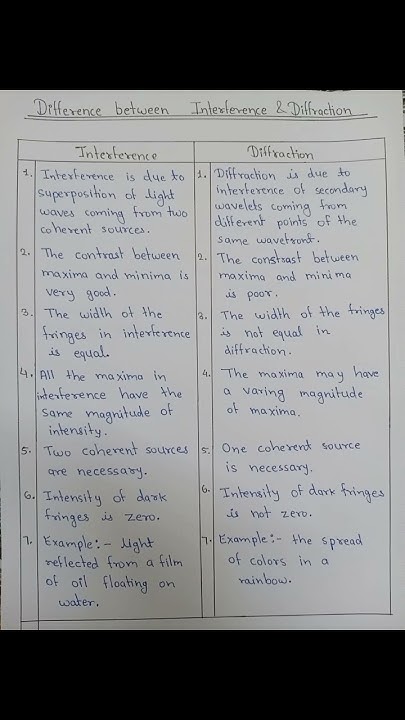 Difference between Interference & Diffraction
Interference
1. Interference is due to
superposition of light
waves coming from two
coherent sources.
2. The contrast between
maxima and minima is
very good.
3. The width of the
fringes in interference
is equal.
4. All the maxima in
interference have the
same magnitude of
intensity.
5. Two coherent sources
are necessary.
6. Intensity of dark
fringes is zero.
7. Example:- light
reflected from a film
of oil floating on
water.
Diffraction
1. Diffraction is due to
interference of secondary
wavelets coming from
different points of the
same wavefront.
2. The constrast between
maxima and minima
is poor.
3. The width of the fringes
is not equal in
diffraction.
4. The maxima may have
a varing magnitude
of maxima.
5. One coherent source
is necessary.
6. Intensity of dark fringes
is not zero.
7. Example:- the spread
of colors in a
rainbow.